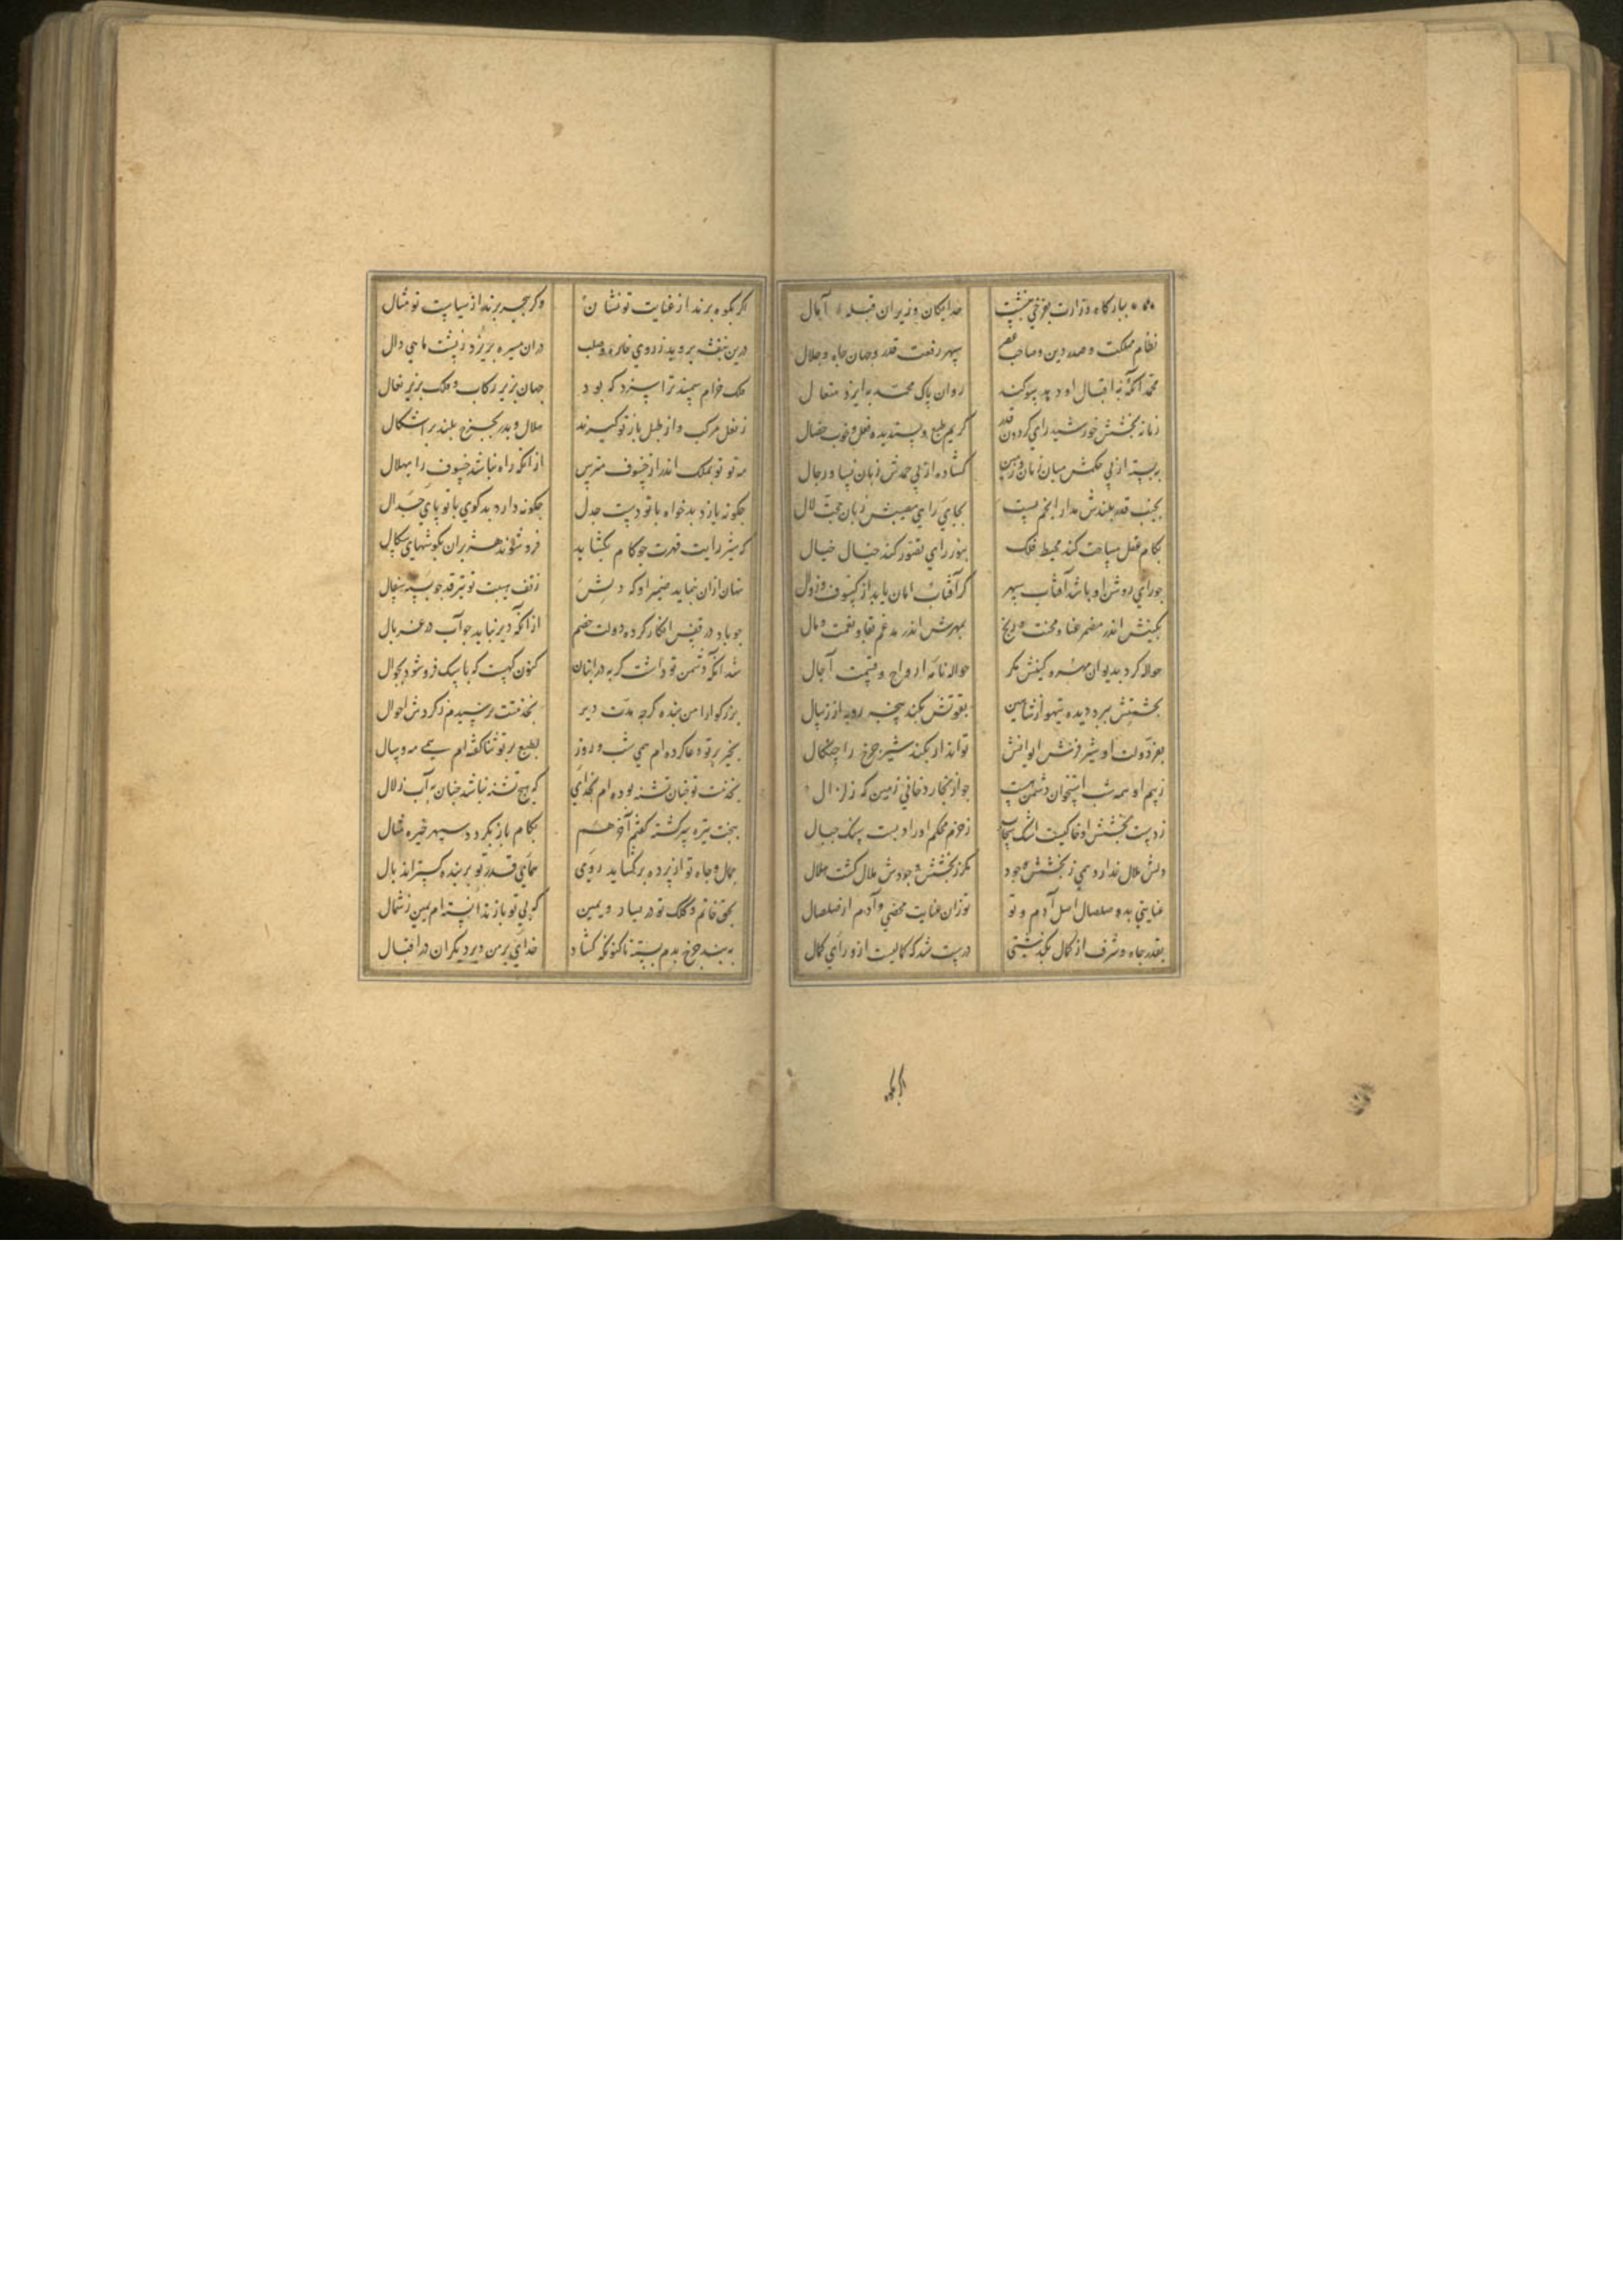 ببارگاه وزارت بفرخی بنشست خدایکان وزیران قبله آمال
نظام مملکت و صدر دین و صاحب عصر سپهر رفعت و قدر و جهان جاه و جلال
محمد آنکه به اقبال او دهد سوکند روان پاک محمد به ایزد متعال
زمانه بخشش خورشید رای کردون قدر کریم طبع و پسندیده فعل و خوب خصال
ببسته از پی حکمش میان زمان و زمین کشاده از پی حمدش زبان نسا و رجال
بجنب قدر بلندش مدار انجم پست بجای رای مصیبش زبان حجت لال
بکام عقل مساحت کند محیط فلک بنور رای تصور کند خیال خیال
جو رای روشن او باشد آفتاب سپهر کر آفتاب امان یابد از کسوف و زوال
بکینش اندر مضمر عنا و محنت و رنج بمهرش اندر مدغم بقا و نعمت و مال
حواله کرد بدیوان مهر و کینش مکر حواله نامه ارواح و قسمت آجال
بحشمتش ببرد دیده تیهو از شاهین بقوتش بکند پنجه روبه از ریبال
بعز دولت او شیر فرش ایوانش تواند ار بکند شیر جرخ را جنکال
ز بیم او همه شب استخوان دشمن هست جو از بخار دخانی زمین که زلزال
ز دست بخشش او خاکیست اشک سحاب ز حزم محکم او راد بست سنک جبال
دلش ملال ندارد همی ز بخشش و جود مکر ز بخشش و جودش ملال کشت ملال
عنایتی بد و صلصال اصل آدم و تو تو زان عنایت محضی و آدم از صلصال
بقدر جاه و شرف از کمال بکذشتی درست شد که کمالیست از ورای کمال
اکر بکوه
اکر بکوه برند از عنایت تو نشان وکر ببحر برند از سیاست تو مثال
درین بنفشه بروید ز روی خاره صلب دران مسیره بریزد ز پشت ماهی دال
فلک خرام سمند ترا سزد که بود جهان بزیر رکاب و فلک بزیر نعال
ز نعل مرکب و از طبل باز تو کیرند هلال و بدر بجرخ بلند بر اشکال
مه تو تو بملک اندر از خسوف مترس از آنکه راه نباشد خسوف را بهلال
جکونه یازد بدخواه با تو دست جدل جکونه دارد بدکوی با تو پای جدال
که شیر رایت قهرت جو کام بکشاید فرو شوند هژبران بکوشهای سکال
نهان ازان بنماید ضمیر او که دلش ز تف هیبت تو بترقد جو پسته سفال
جو باد در قفس انکار کرده دولت خصم از آنکه دیر نباید جو آب در غربال
شد آنکه دشمن تو داشت کربه در انبان کنون کهیست که با سک فرو شود بجوال
بزرکوارا من بنده کرجه مدت دیر بخدمتت نرسیدم ز کردش احوال
بخیر بر تو دعا کرده ام همی شب و روز بطبع بر تو ثنا کفته ام همی مه و سال
بخدمت تو جنان تشنه بوده ام بخدای که هیج تشنه نباشد جنان به آب زلال
ببخت تیره سرکشته کفتم آخر هم بکام باز نکردد سپهر خیره مثال
جمال و جاه تو از پرده برکشاید روی همای قدر تو بر بنده کستراند بال
بحق خاتم و کلک تو در یسار و یمین که بی تو باز ندانسته ام یمین ز شمال
به بند جرخ بدم بسته تا کنونکه کشاد خدای بر من در دیکران در اقبال